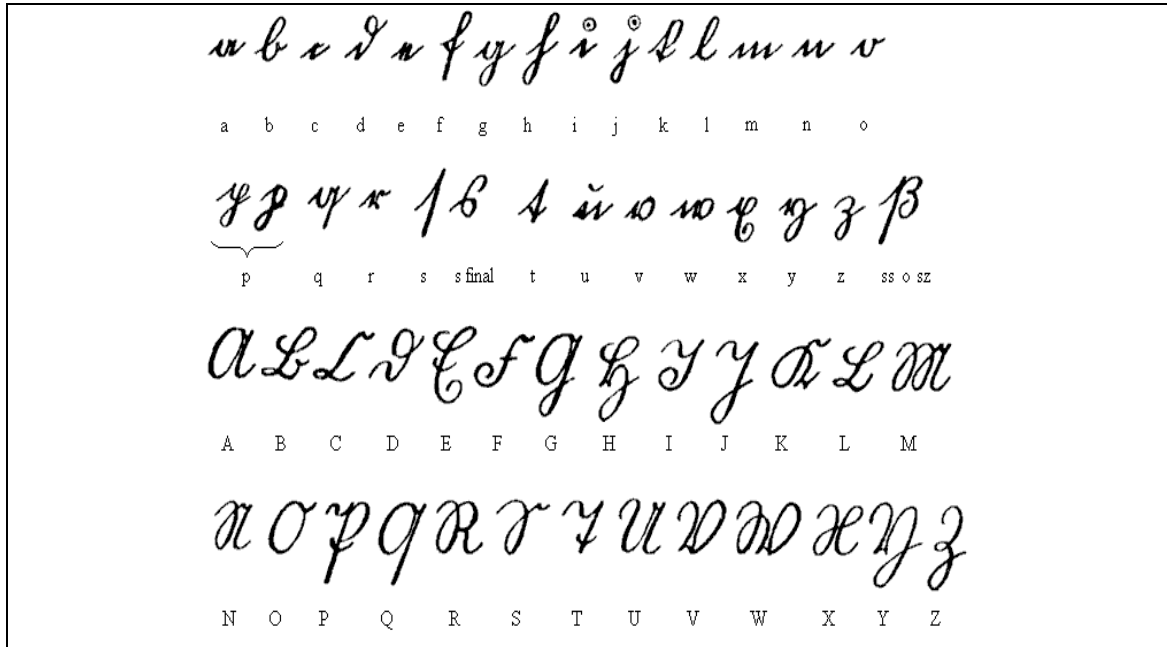 a b c d e f g h i j k l m n o
a b c d e f g h i j k l m n o
p p q r ſ s t u v w x y z ß
p q r s s final t u v w x y z ss o sz
A B C D E F G H I J K L M
A B C D E F G H I J K L M
N O P Q R S T U V W X Y Z
N O P Q R S T U V W X Y Z